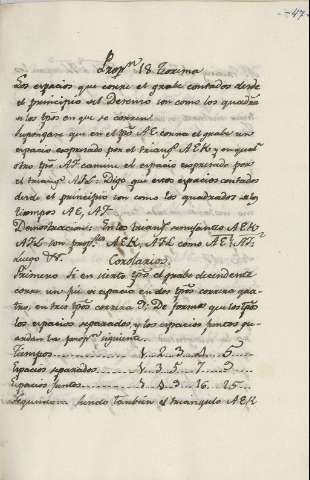 47.
Propn 18 Teorema
Los espacios que corre el grabe contados desde
el principio del Descenso son como los quadrados
a los tpos en que se corren
Supongase que en el tpo AE corra el grabe un
espacio expresado por el triang. AEK y en qual
otro tpo AF camine el espacio expresado por
el triang. AFL: Digo que estos espacios contados
desde el principio son como los quadrados de los
tiempos AE, AF
Demostracion: En los triang. semejantes AEK
AFL son AEK, AFL como AE² : AF²
Luego &.
Corolarios.
Primero: Si en cierto tpo el grabe decendente
corre un pie de espacio en dos tpos correra qua-
tro, en tres tpos correra 9: De forma que los tpos
los espacios separados, y los espacios juntos gu-
ardan la propn siguiente.
Tiempos 1. 2. 3. 4. 5
Espacios separados 1. 3. 5. 7. 9
Espacios juntos 1. 4. 9. 16. 25.
siendo tambien el triangulo AEK